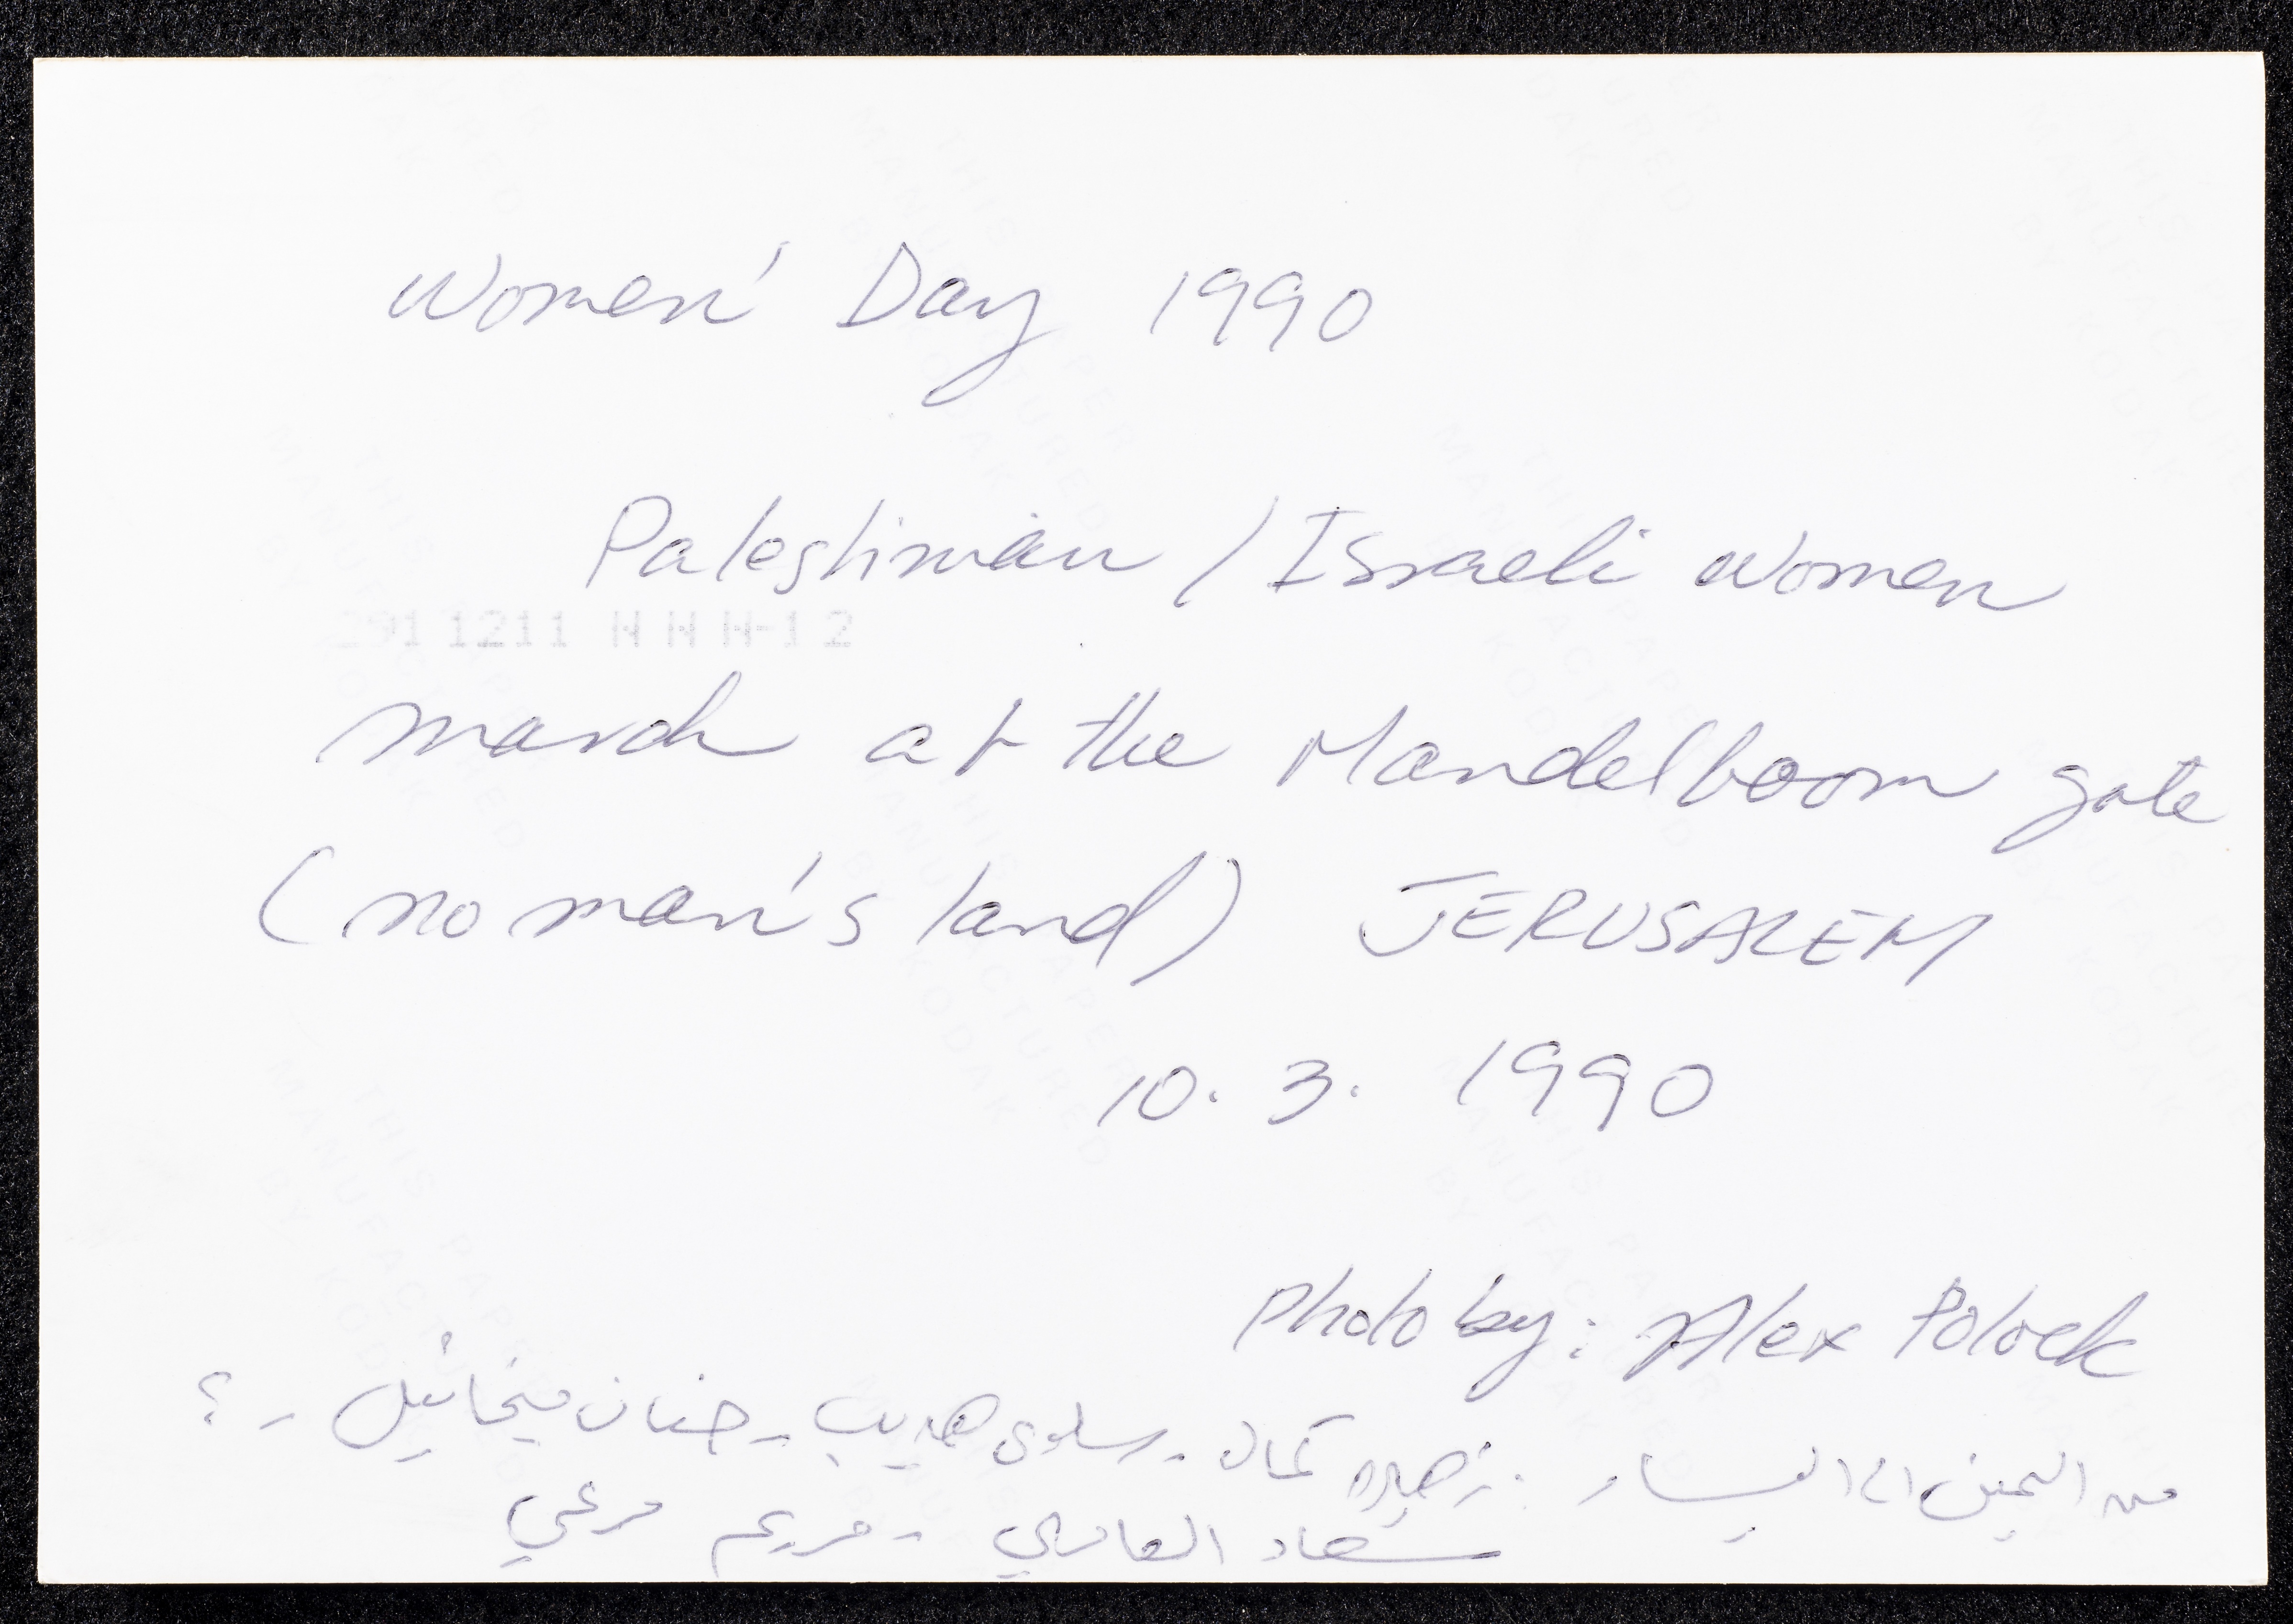 Women' Day 1990
Palestinian / Israeli Women
291 1211 N N N-12
march at the Mandelboom gate
(no man's land) JERUSALEM
10. 3. 1990
photo by: Alex Polock
من اليمين الى اليسار: زهيرة كمال - سلوى هديب - حنان ميخائيل - ؟
سعاد العامري - مريم مرعي